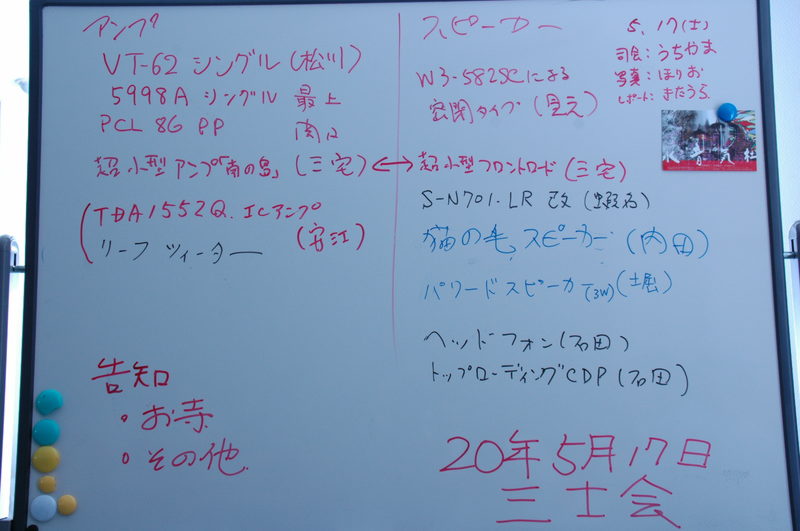 アンプ
VT-62 シングル (松川)
5998A シングル 最上
PCL 86 PP 関口
超小型アンプ「南の島」 (三宅) ↔ 超小型フロントロード (三宅)
(TDA1552Q. ICアンプ
リーフ ツィーター (安江)
告知
・お寺
・その他
スピーカー
W3-582SCによる
密閉タイプ
S-N701-LR 改 (蝦名)
猫の毛スピーカー (内田)
パワードスピーカ(3W) (堀)
ヘッドフォン (石田)
トップローディングCDP (石田)
5.17(土)
司会: うちやま
写真: ほりお
レポート: きたうら
20年5月17日
三土会